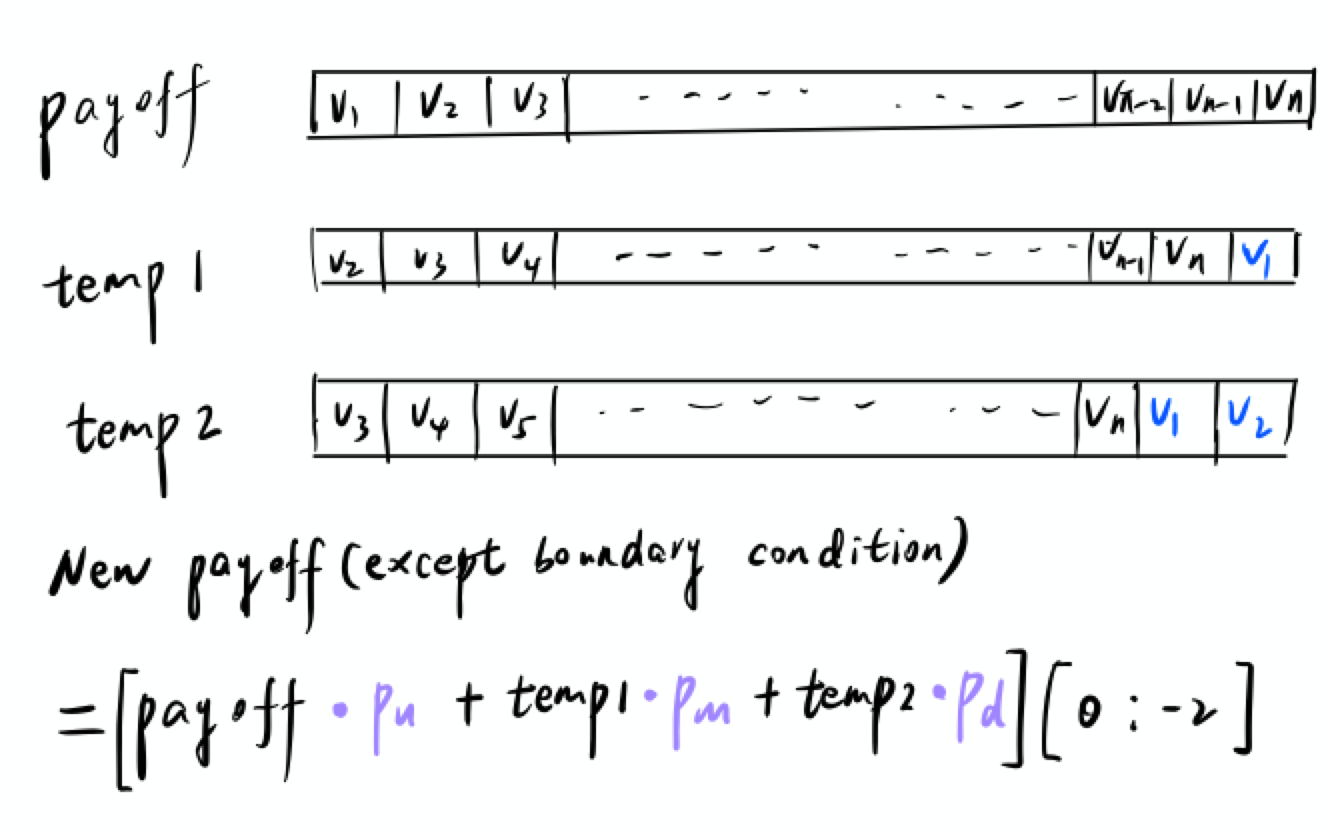 payoff V₁ | V₂ | V₃ | - - - - - - - - - - | Vₙ₋₂ | Vₙ₋₁ | Vₙ
temp 1 V₂ | V₃ | V₄ | - - - - - - - - - - | Vₙ₋₁ | Vₙ | V₁
temp 2 V₃ | V₄ | V₅ | - - - - - - - - - - | Vₙ | V₁ | V₂
New payoff (except boundary condition)
= [payoff · pu + temp1 · pm + temp2 · pd] [0 : -2]